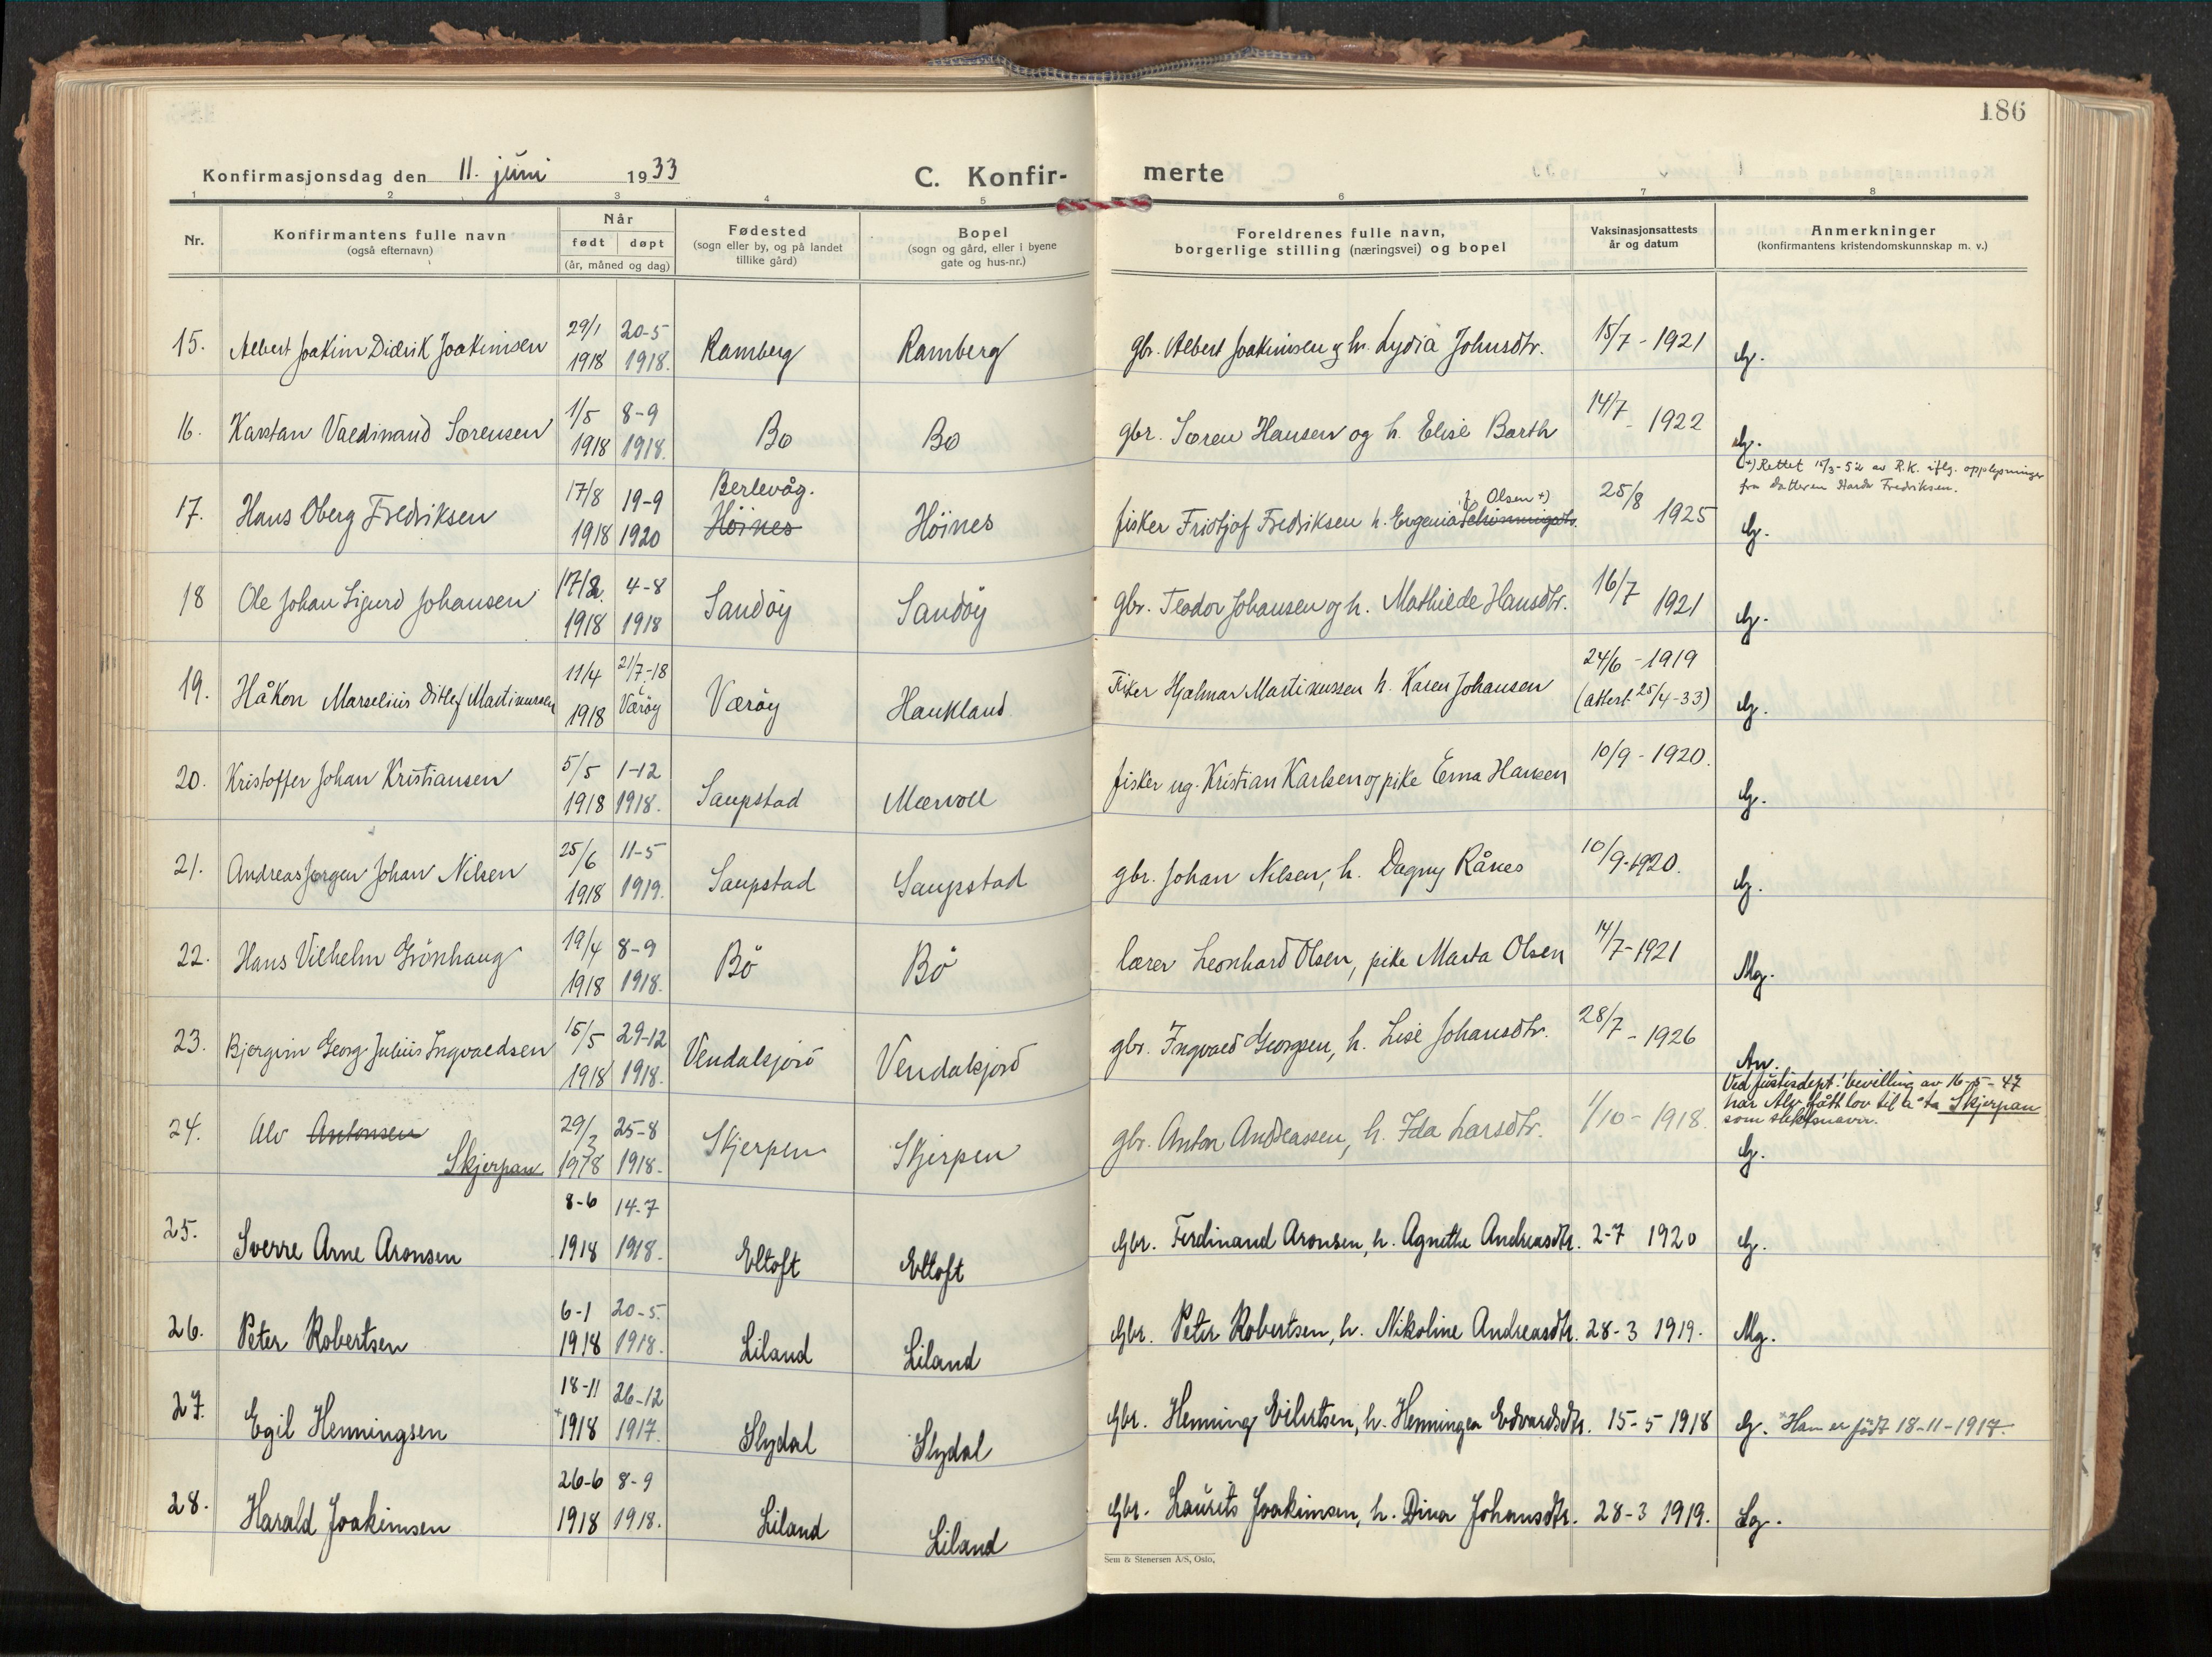 186
Konfirmasjonsdag den 11. juni 1933 C. Konfir- merte
1 2 3 4 5 6 7 8
Nr. Konfirmantens fulle navn (også efternavn) Når født døpt (år, måned og dag) Fødested (sogn eller by, og på landet tillike gård) Bopel (sogn og gård, eller i byene gate og hus-nr.) Foreldrenes fulle navn, borgerlige stilling (næringsvei) og bopel Vaksinasjonsattests år og datum Anmerkninger (konfirmantens kristendomskunnskap m. v.)
15. Albert Joakim Didrik Joakimsen 29/1 1918 20-5 1918. Ramberg Ramberg gbr. Albert Joakimsen og h. Lydia Johnsdtr. 15/7 - 1921 G.
16. Karstan Valdinand Sørensen 1/5 1918 8-9 1918. Bø Bø gbr. Søren Hansen og h. Elise Barth 14/7 - 1922 G.
+) Rettet 15/3-52 av R.K. iflg. opplysninger
fra datteren Fredriksen.
17. Hans Oberg Fredriksen 17/8 1918 19-9 1920 Berlevåg. Höines Höines fisker Fridtjof Fredriksen h. Ergenia f. Olsen +) 25/8 1925 G.
18 Ole Johan Sigurd Johansen 17/2 1918 4-8 1918 Sandöy Sandöy gbr. Teodor Johansen og h. Mathilde Hansdtr. 16/7 1921 G.
19. Håkon Marselius Ditlef Martinussen 11/4 1918 21/7-18 Værøy Værøy Haukland Fisker Hjalmar Martinussen h. Karen Johansen 24/6 - 1919 (attest 25/4-33) G.
20. Kristoffer Johan Kristiansen 5/5 1918 1-12 1918. Saupstad Mærvoll fisker ug. Kristian Karlsen og pike Erna Hansen 10/9 - 1920. G.
21. Andreas Jørgen Johan Nilsen 25/6 1918 11-5 1919. Saupstad Saupstad gbr. Johan Nilsen, h. Dagny Rånes 10/9-1920. G.
22. Hans Vilhelm Grönhaug 19/4 1918 8-9 1918. Bö Bö lærer Leonhard Olsen, pike Marta Olsen 14/7-1921 Mg.
23. Bjørgvin Georg Julius Ingvaldsen 15/5 1918 29-12 1918. Vendalsjord Vendalsjord gbr. Ingvald Georgsen, h. Lise Johansdtr. 28/7 - 1926
Anr.
Ved Justisdept.' bevilling av 16-5-47
har Alv fått lov til å ta Skjerpan
som slektsnavn.
24. Alv Antonsen Skjerpan 29/3 1918 25-8 1918. Skjerpen Skjerpen gbr. Anton Andreassen, h. Ida Larsdtr. 1/10 - 1918. G.
25. Sverre Arne Aronsen 8-6 1918 14-7 1918. Eltoft Eltoft Gbr. Ferdinand Aronsen, h. Agnethe Andreasdtr. 2-7 1920 G.
26. Peter Robertsen 6-1 1918 20-5. 1918. Liland Liland Gbr. Peter Robertsen, h. Nikoline Andreasdtr. 28-3 1919. Mg.
27. Egil Henningsen 18-11 +1918 26-12 1917. Slydal Slydal Gbr. Henning Eilertsen, h. Henningea Edvardsdtr. 15-5 1918 G. *Han er født 18-11-1917.
28. Harald Joakimsen 26-6 1918 8-9 1918. Liland Liland Gbr. Laurits Joakimsen, h. Dina Johansdtr. 28-3 1919. Lg.
Sem & Stenersen A/S, Oslo,